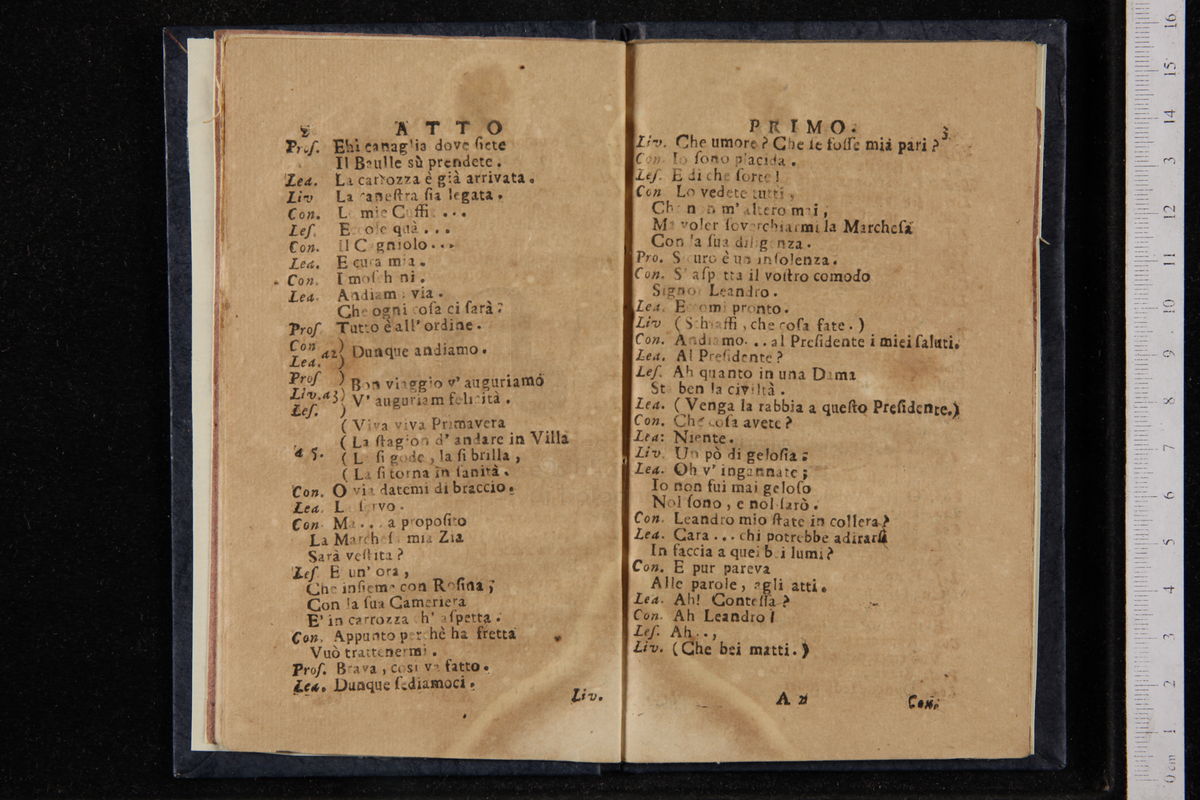 ATTO
Prof. Ehi canaglia dove siete
Il Baulle sù prendete.
Lea. La carrozza è già arrivata.
Liv La canestra sia legata.
Con. Le mie Cuffie...
Les. Eccole quà...
Con. Il Cagniolo...
Lea. E cura mia.
Con. I moschini.
Lea. Andiamo via.
Che ogni cosa ci sarà?
Prof. Tutto è all' ordine.
Con. )
Lea. a2 ) Dunque andiamo.
Prof )
Liv. a3 ) Bon viaggio v' auguriamo
Les. ) V' auguriam felicità.
( Viva viva Primavera
( La stagion d' andare in Villa
a 5. ( La si gode, la si brilla,
( La si torna in sanità.
Con. O via datemi di braccio.
Lea. La servo.
Con. Ma... a proposito
La Marchesa mia Zia
Sarà vestita?
Les. E un' ora,
Che insieme con Rosina;
Con la sua Cameriera
E' in carrozza ch' aspetta.
Con. Appunto perchè ha fretta
Vuò trattenermi.
Prof. Brava, così va fatto.
Lea. Dunque sediamoci.
Liv.
PRIMO. 3
Liv. Che umore? Che se fosse mia pari?
Con. Io sono placida.
Les. E di che sorte!
Con Lo vedete tutti,
Che non m' altero mai,
Ma voler soverchiarmi la Marchesa
Con la sua diligenza.
Pro. Sicuro è un insolenza.
Con. S' aspetta il vostro comodo
Signor Leandro.
Lea. Eccomi pronto.
Liv (Schiaffi, che cosa fate.)
Con. Andiamo... al Presidente i miei saluti.
Lea. Al Presidente?
Les. Ah quanto in una Dama
Sta ben la civiltà.
Lea. (Venga la rabbia a questo Presidente.)
Con. Che cosa avete?
Lea: Niente.
Liv. Un pò di gelosia;
Lea. Oh v' ingannate;
Io non fui mai geloso
Nol sono, e nol sarò.
Con. Leandro mio state in collera?
Lea. Cara... chi potrebbe adirarsi
In faccia a quei bei lumi?
Con. E pur pareva
Alle parole, agli atti.
Lea. Ah! Contessa?
Con. Ah Leandro!
Les. Ah..,
Liv. (Che bei matti.)
A 2 Con.
16
15
14
13
12
11
10
9
8
7
6
5
4
3
2
1
0 cm